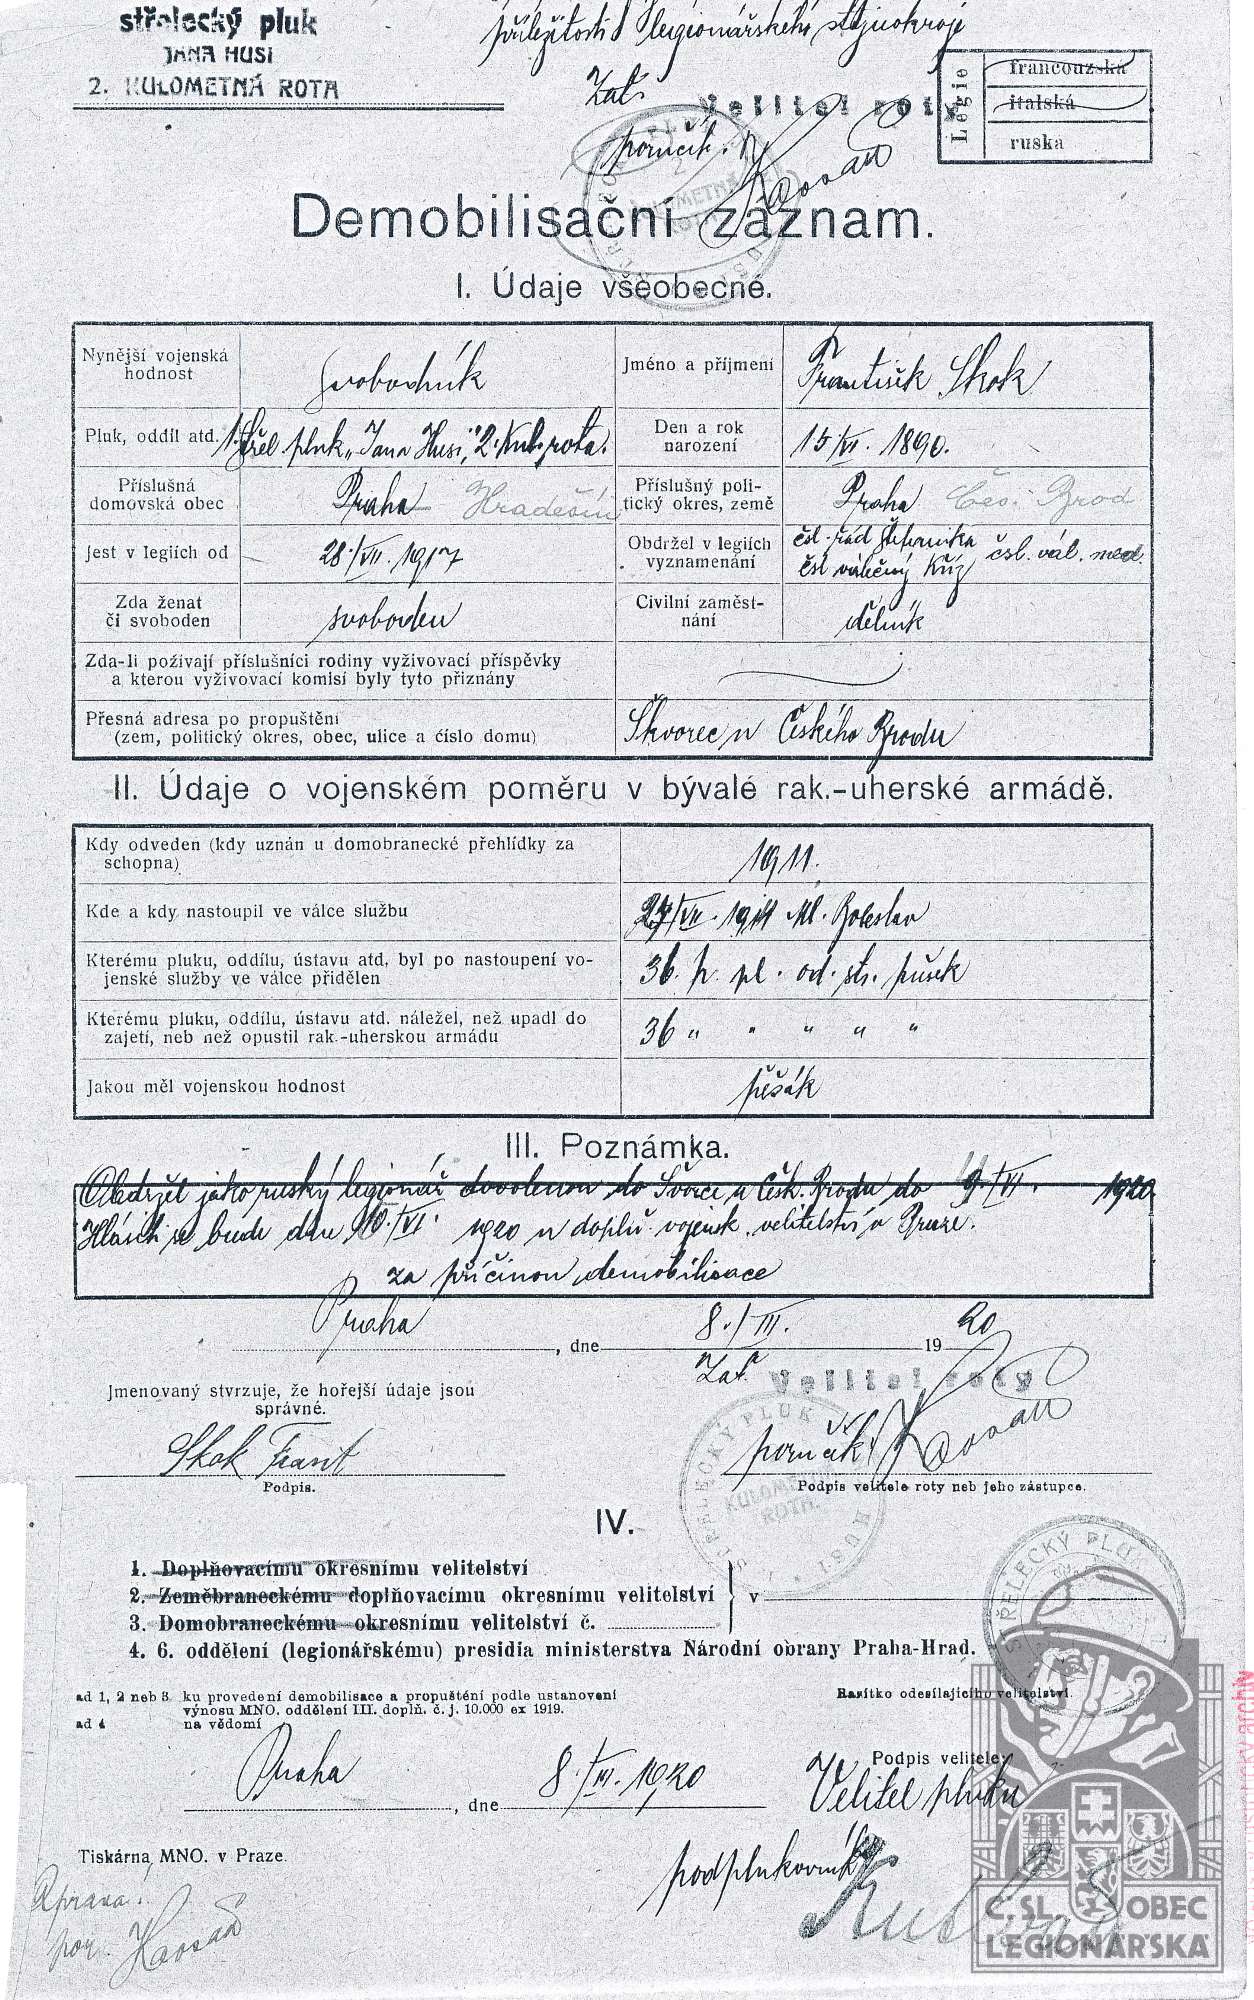 střelecký pluk
JANA HUSI
2. KULOMETNÁ ROTA
příležitosti legionářského stejnokroje
Zat.
Velitel roty
poručík
Legie
francouzská
italská
ruska
Demobilisační záznam.
I. Údaje všeobecné.
Nynější vojenská hodnost
svobodník
Jméno a příjmení
František Skok
Pluk, oddíl atd.
1. střel. pluk „Jana Husi„ 2. kul. rota.
Den a rok narození
15/VI. 1890.
Příslušná domovská obec
Praha Hradešín
Příslušný politický okres, země
Praha Čes. Brod
Jest v legiích od
28./VII. 1917
Obdržel v legiích vyznamenání
čsl. řád Štefanika čsl. vál. med.
čsl válečný kříž
Zda ženat či svoboden
svoboden
Civilní zaměstnání
dělník
Zda-li požívají příslušníci rodiny vyživovací příspěvky
a kterou vyživovací komisí byly tyto přiznány
Přesná adresa po propuštění
(zem, politický okres, obec, ulice a číslo domu)
Škvorec u Českého Brodu
II. Údaje o vojenském poměru v bývalé rak.-uherské armádě.
Kdy odveden (kdy uznán u domobranecké přehlídky za
schopna)
1911.
Kde a kdy nastoupil ve válce službu
27/VII. 1914 Ml. Boleslav
Kterému pluku, oddílu, ústavu atd. byl po nastoupení vo-
jenské služby ve válce přidělen
36. p. pl. od. str. pušek
Kterému pluku, oddílu, ústavu atd. náležel, než upadl do
zajetí, neb než opustil rak.-uherskou armádu
36 „ „ „ „ „
Jakou měl vojenskou hodnost
pěšák
III. Poznámka.
Obdržel jako ruský legionář dovolenou do Švorce u Česk. Brodu do 9./VI. 1920
Hlásit se bude dne 10./VI. 1920 u doplň. vojensk. velitelství v Praze.
za příčinou demobilisace
Praha, dne 8./III. 1920
Zat.
Velitel roty
Jmenovaný stvrzuje, že hořejší údaje jsou
správné.
Skok Frant
poručík
Podpis.
Podpis velitele roty neb jeho zástupce.
STŘELECKÝ PLUK
KULOMETNÁ
ROTA.
HUSI
IV.
1. Doplňovacímu okresnímu velitelství
2. Zeměbraneckému doplňovacímu okresnímu velitelství
v
3. Domobraneckému okresnímu velitelství č.
4. 6. oddělení (legionářskému) presidia ministerstva Národní obrany Praha-Hrad.
STŘELECKÝ PLU
ad 1, 2 neb 3. ku provedení demobilisace a propuštění podle ustanovení
výnosu MNO. oddělení III. doplň. č. j. 10.000 ex 1919.
ad 4 na vědomí
Razítko odesílajícího velitelství.
Praha, dne 8./III. 1920
Podpis velitele:
Velitel pluku
podplukovník
Tiskárna MNO. v Praze.
Č. SL. OBEC
LEGIONÁŘSKÁ